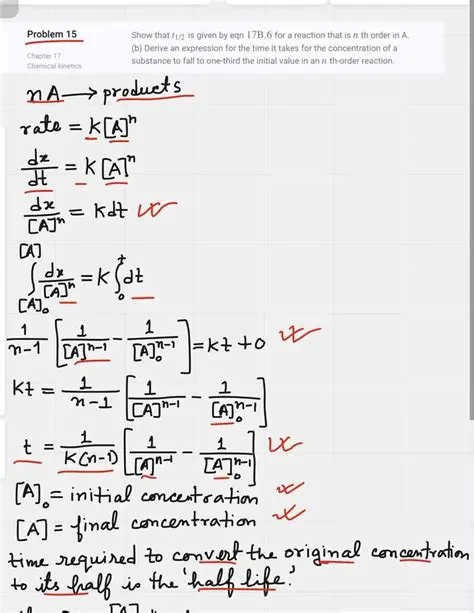 Problem 15
Chapter 17
Chemical kinetics
Show that t1/2 is given by eqn 17B.6 for a reaction that is n th order in A.
(b) Derive an expression for the time it takes for the concentration of a
substance to fall to one-third the initial value in an n th-order reaction.
nA → products
rate = k[A]^n
dx/dt = k[A]^n
dx/[A]^n = kdt
∫_{[A]_0}^{[A]} dx/[A]^n = k∫_0^t dt
1/(n-1) [1/[A]^{n-1} - 1/[A]_0^{n-1}] = kt + 0
kt = 1/(n-1) [1/[A]^{n-1} - 1/[A]_0^{n-1}]
t = 1/(k(n-1)) [1/[A]^{n-1} - 1/[A]_0^{n-1}]
[A]_0 = initial concentration
[A] = final concentration
time required to convert the original concentration
to its half is the 'half life.'